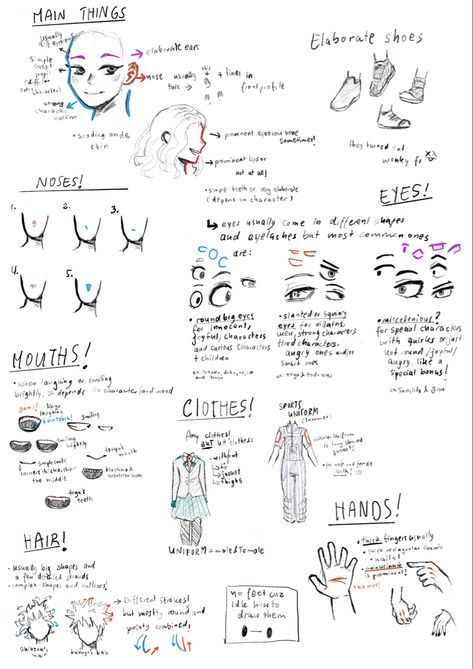 MAIN THINGS
usually
simple
strong
character
outline
elaborate ears
nose usually
this
+ lines in
front profile
• shading under
chin
prominent eyebrow bone
sometimes!
prominent lips or
not at all)
• simple teeth or very elaborate
(depends on character)
Elaborate shoes
they turned out
wonky fr
NOSES!
1.
2.
3.
4.
5.
EYES!
eyes usually come in different shapes
and eyelashes but most common ones
are:
• round big eyes
for innocent,
joyful, characters
and curious characters
+ children
• slanted or squary
eyes for villains,
strong characters
tired characters,
angry ones and/or
smart ones
ex. toga & todoroki
• miscellenious?
for special characters
with quirks or just
not round/joyful/
angry, like a
special bonus!
MOUTHS!
• When laughing or smiling
brightly, it depends on character (and mood)
gums!
laughing
smiling
smiling
slightly
corners thicker than
the middle
toga's
teeth
CLOTHES!
Any clothes!
BUT UA clothes
• without
jacket
+ thighs
UNIFORM = male & female
SPORTS
UNIFORM
HAIR!
• usually big shapes and
a few detailed strands
• complex shapes and outlines!
shinsou's
hair
bakugo's hair
Different strokes!
but mostly round and
pointy combined!
no feet cuz
idk how to
draw them
HANDS!
• thick fingers usually
• nails!
is prominent!